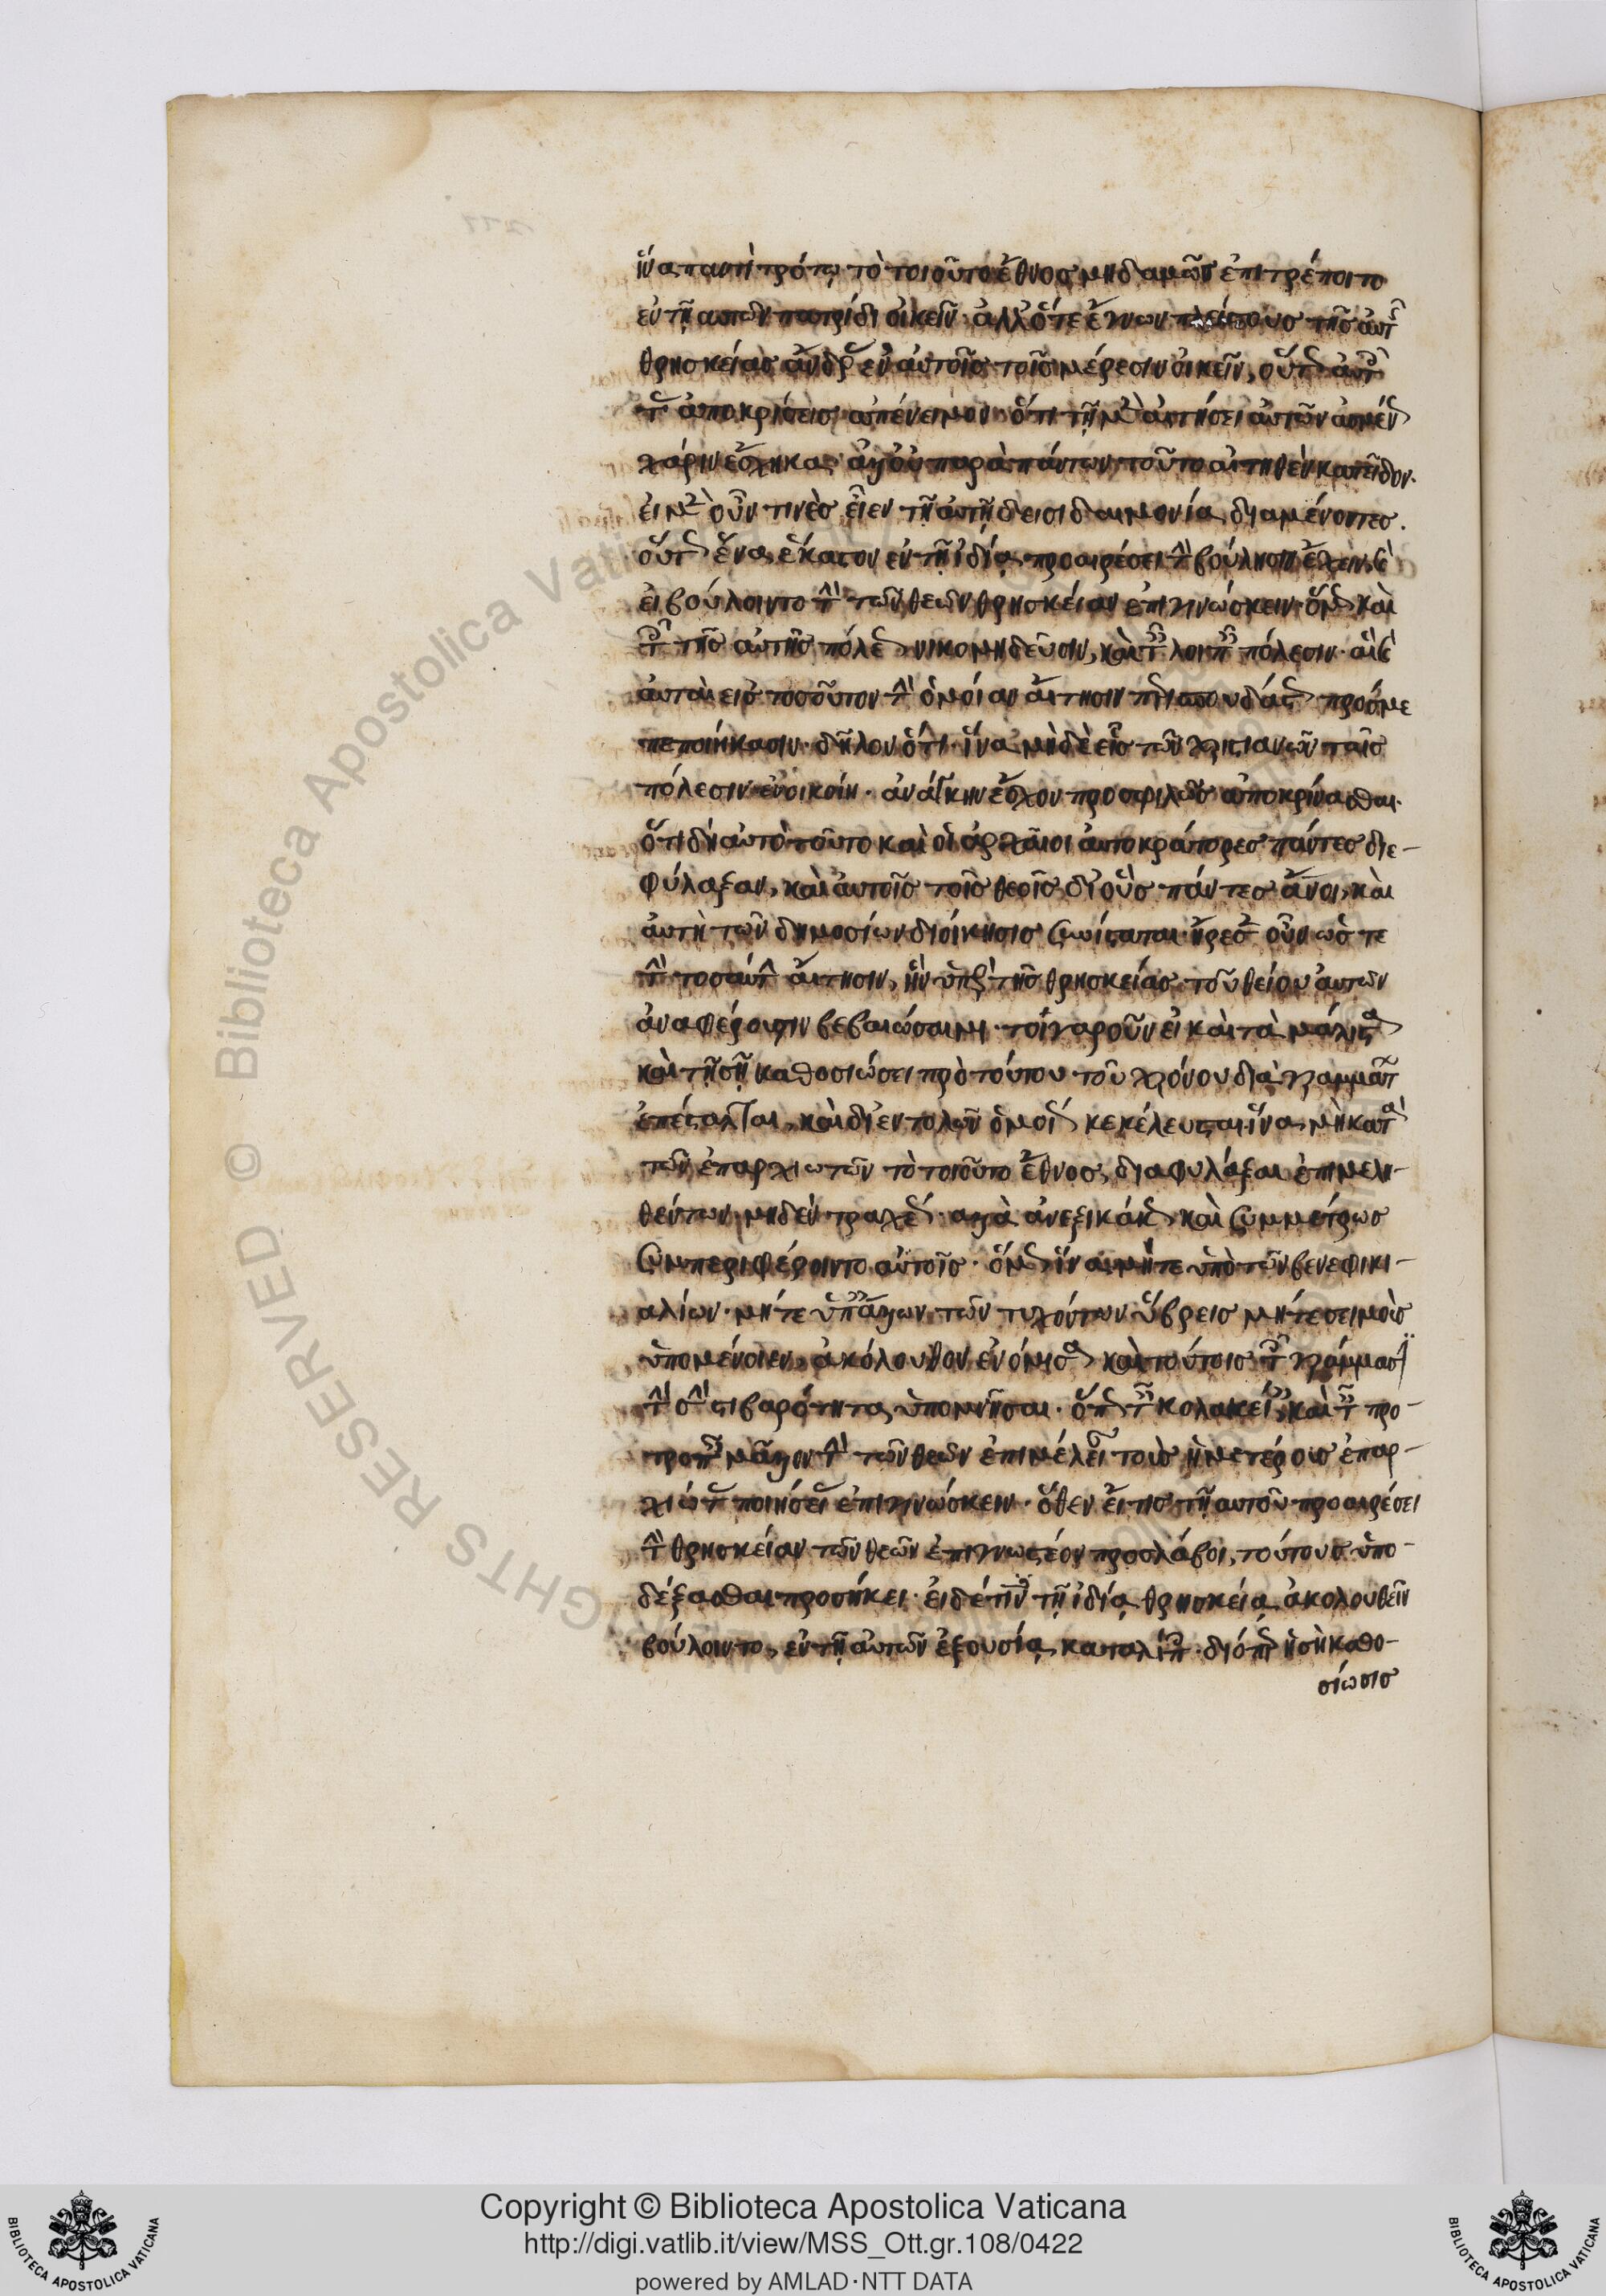 ἵνα παντὶ τρόπῳ τὸ τοιοῦτο ἔθνος μηδαμῶς ἐπιτρέποιτο
ἐν τῇ αὐτῶν πατρίδι οἰκεῖν· ἀλλ' ὅτε ἔγνων πλείστους τῆς αὐτῆς
θρησκείας ἄνδρας ἐν αὐτοῖς τοῖς μέρεσιν οἰκεῖν, οὕτως αὐτοῖς
τὰς ἀποκρίσεις ἀπένειμον· ὅτι τῇ μὲν αἰτήσει αὐτῶν ἀσμένως
χάριν ἔσχηκα· ἀλλ' οὐ παρὰ πάντων τοῦτο αἰτηθὲν κατεῖδον·
εἰ μὲν οὖν τινὲς εἶεν τῇ αὐτῇ δεισιδαιμονίᾳ διαμένοντες.
οὕτως ἕνα ἕκαστον ἐν τῇ ἰδίᾳ προαιρέσει τὴν βούλησιν ἔχειν. καὶ
εἰ βούλοιντο τὴν τῶν θεῶν θρησκείαν ἐπιγινώσκειν· ὅμως καὶ
τοῖς τῆς αὐτῆς πόλεως νικομηδεῦσιν, καὶ ταῖς λοιπαῖς πόλεσιν· αἳ καὶ
αὐταὶ εἰς τοσοῦτον τὴν ὁμοίαν αἴτησιν περισπουδάστως πρός με
πεποιήκασιν· δῆλον ὅτι· ἵνα μὴ δὲ εἷς τῶν χριστιανῶν ταῖς
πόλεσιν ἐνοικοίη· ἀνάγκην ἔσχον προσφιλῶς ἀποκρίνασθαι·
ὅτι δὴ αὐτὸ τοῦτο καὶ οἱ ἀρχαῖοι αὐτοκράτορες πάντες διε-
φύλαξαν, καὶ αὐτοῖς τοῖς θεοῖς δι' οὓς πάντες ἄνοι, καὶ
αὐτὴ τῶν δημοσίων διοίκησις συνίσταται· ἤρεσεν οὖν ὥς τε
τὴν τοσαύτην αἴτησιν, ἣν ὑπὲρ τῆς θρησκείας τοῦ θείου αὐτῶν
ἀναφέρουσιν βεβαιώσαιμι· τοιγαροῦν εἰ καὶ τὰ μάλιστα
καὶ τῇ σῇ καθοσιώσει πρὸ τούτου τοῦ χρόνου διὰ γραμμάτων
ἐπέσταλται, καὶ δι' ἐντολῶν ὁμοίως κεκέλευσται· ἵνα μὴ κατὰ
τῶν ἐπαρχιωτῶν τὸ τοιοῦτο ἔθνος, διαφυλάξαι ἐπιμελη-
θέντων μηδὲν τραχέως· ἀλλὰ ἀνεξικάκως καὶ συμμέτρως
συμπεριφέροιντο αὐτοῖς· ὅμως ἵνα μήτε ὑπὸ τῶν βενεφικι-
αλίων· μήτε ὑπ' ἄλλων τῶν τυχόντων ὕβρεις μήτε σεισμοὺς
ὑπομένοιεν, ἀκόλουθον ἐνόμισα καὶ τούτοις τοῖς γράμμασι
τὴν σὴν στιβαρότητα ὑπομνῆσαι· ὅπως ταῖς κολακείαις, καὶ ταῖς προ-
τροπαῖς μᾶλλον τὴν τῶν θεῶν ἐπιμέλειαν τοὺς ἡμετέρους ἐπαρ-
χιώτας ποιήσειας ἐπιγινώσκειν· ὅθεν εἴ τις τῇ αὐτοῦ προαιρέσει
τὴν θρησκείαν τῶν θεῶν ἐπιγνωστέον προσλάβοι, τούτους ὑπο-
δέξασθαι προσήκει· εἰ δέ τινες τῇ ἰδίᾳ θρησκείᾳ ἀκολουθεῖν
βούλοιντο, ἐν τῇ αὐτῶν ἐξουσίᾳ καταλίποις· διόπερ ἡ σὴ καθο-
σίωσις
Copyright © Biblioteca Apostolica Vaticana
http://digi.vatlib.it/view/MSS_Ott.gr.108/0422
powered by AMLAD·NTT DATA